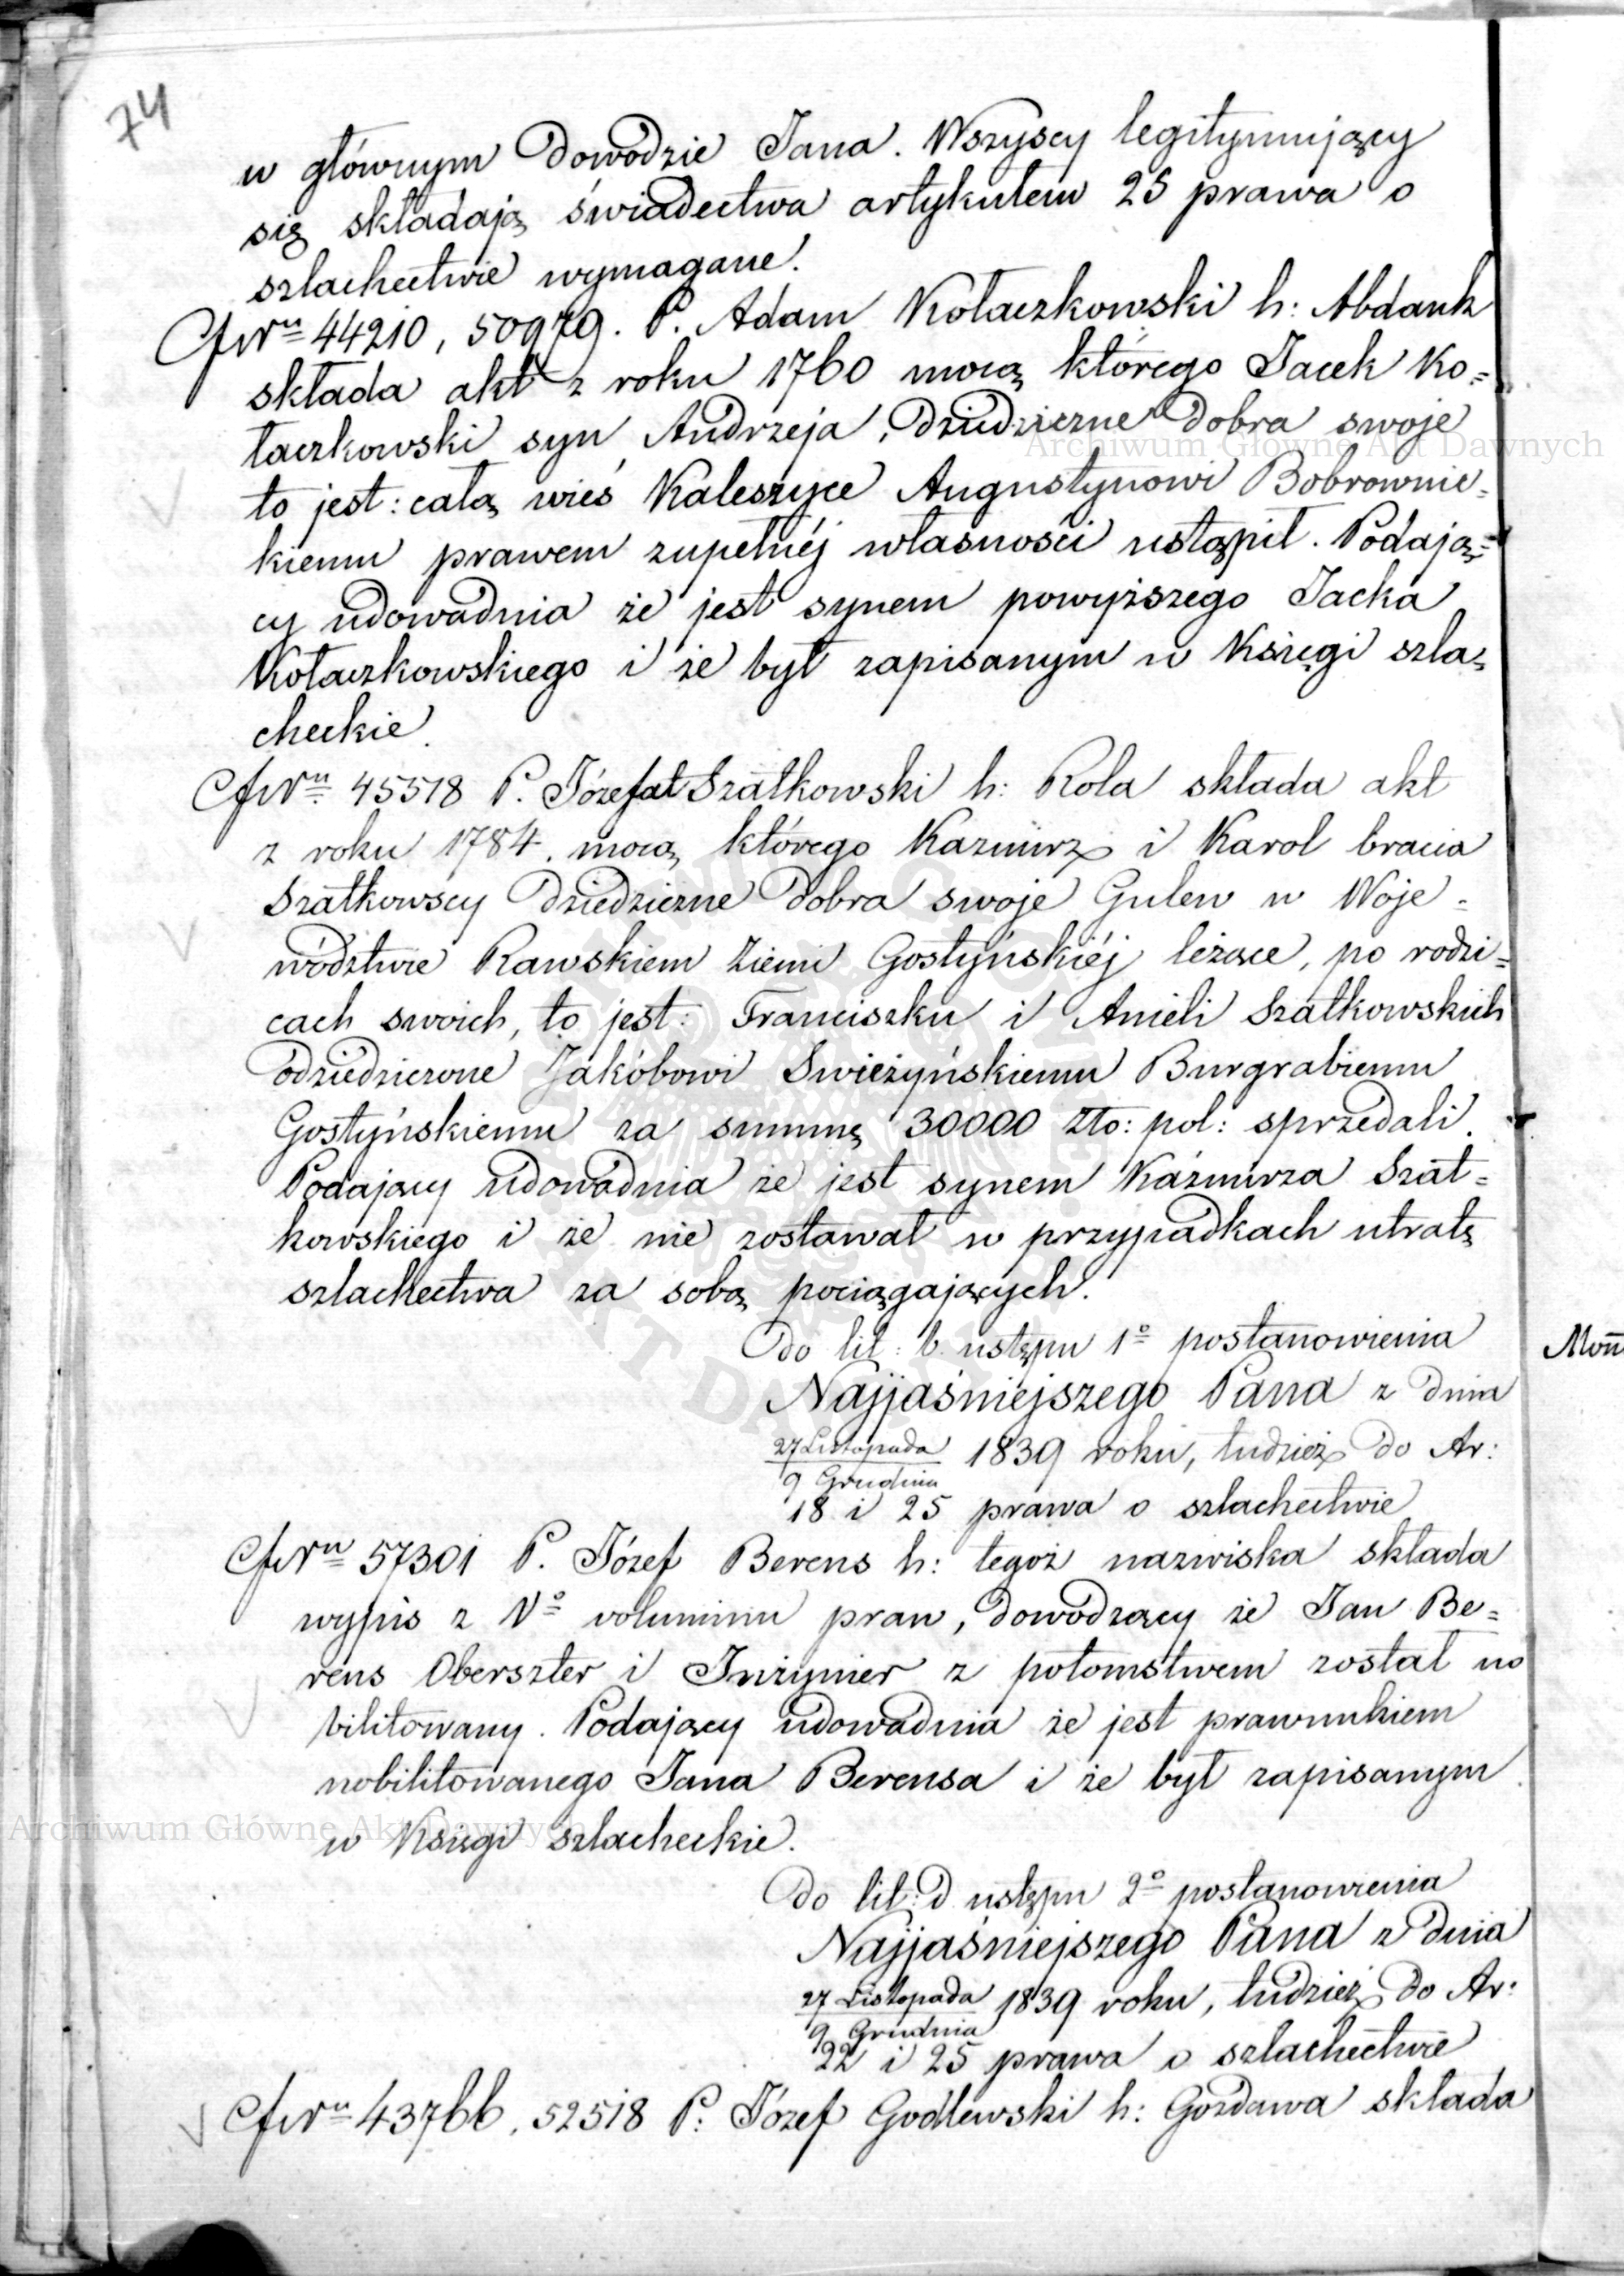 74
w głównym dowodzie Jana. Wszyscy legitymujący
się składają świadectwa artykułem 25 prawa o
szlachectwie wymagane.
44210, 50979. P. Adam Kołaczkowski h: Abdank
składa akt z roku 1760 mocą którego Jacek Ko=
łaczkowski syn Andrzeja, dziedziczne dobra swoje
to jest: całą wieś Kaleszyce Augustynowi Bobrownic=
kiemu prawem zupełnéj własności ustąpił. Podają=
cy udowadnia że jest synem powyższego Jacka
Kołaczkowskiego i że był zapisanym w Księgi szla=
checkie.
45518 P. Józefat Szatkowski h: Rola składa akt
z roku 1784. mocą którego Kazmirz i Karol bracia
Szatkowscy dziedziczne dobra swoje Gulew w Woje=
wództwie Rawskiem Ziemi Gostyńskiéj leżące, po rodzi=
cach swoich, to jest: Franciszku i Anieli Szatkowskich
odziedziczone Jakóbowi Swieżyńskiemu Burgrabiemu
Gostyńskiemu za summę 30000 zło: pol: sprzedali.
Podający udowadnia że jest synem Kaźmirza Szat=
kowskiego i że nie zostawał w przypadkach utratę
szlachectwa za sobą pociągających.
Do lit: b. ustępu 1º postanowienia
Najjaśniejszego Pana z dnia
27 Listopada
9 Grudnia 1839 roku, tudzież do Ar:
18 i 25 prawa o szlachectwie
57301 P. Józef Berens h: tegoż nazwiska składa
wypis z Vº voluminu praw, dowodzący że Jan Be=
rens Oberszter i Inżynier z potomstwem został no
bilitowany. Podający udowadnia że jest prawnukiem
nobilitowanego Jana Berensa i że był zapisanym
w Księgi szlacheckie.
Do lit: d ustępu 2º postanowienia
Najjaśniejszego Pana z dnia
27 Listopada
9 Grudnia 1839 roku, tudzież do Ar:
22 i 25 prawa o szlachectwie
43766, 52518 P. Józef Godlewski h: Gozdawa składa
Archiwum Główne Akt Dawnych
Archiwum Główne Akt Dawnych